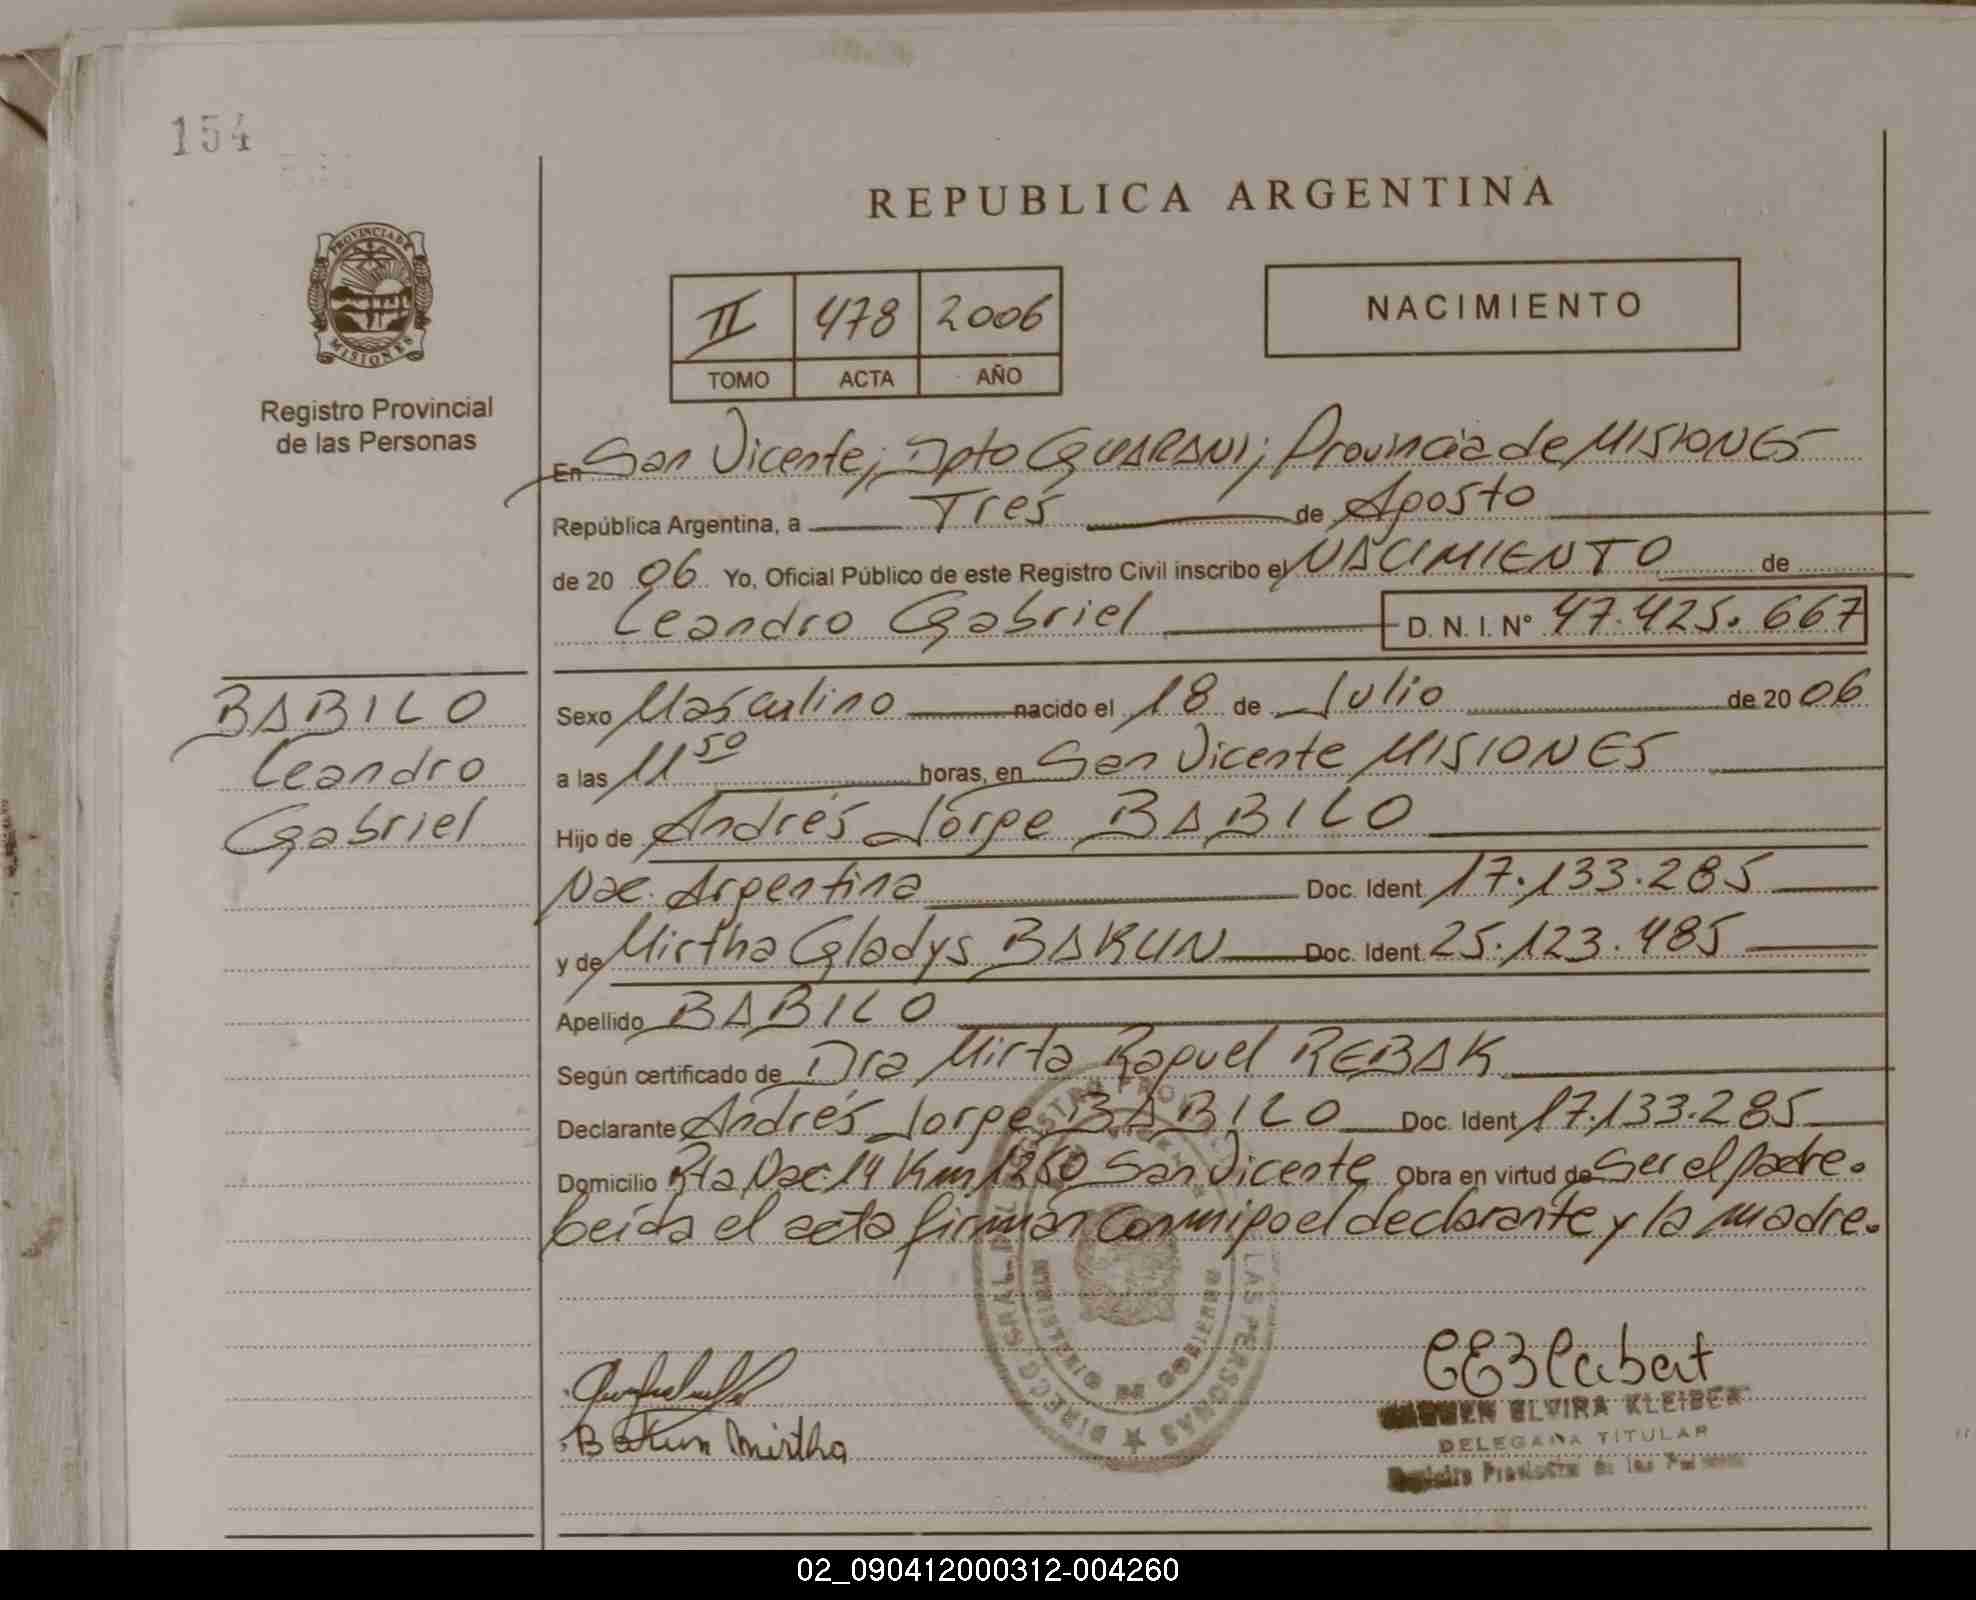 154
PROVINCIA DE
MISIONES
Registro Provincial
de las Personas
REPUBLICA ARGENTINA
II 478 2006
TOMO ACTA AÑO
NACIMIENTO
En San Vicente; Dpto GUARANI; Provincia de MISIONES
República Argentina, a Tres de Agosto
de 20 06 Yo, Oficial Público de este Registro Civil inscribo el NACIMIENTO de
Leandro Gabriel D. N. I. N° 47.425.667
BABILO
Leandro
Gabriel
Sexo Masculino nacido el 18 de Julio de 20 06
a las 11 50 horas, en San Vicente MISIONES
Hijo de Andrés Jorge BABILO
Nac. Argentina Doc. Ident 17.133.285
y de Mirtha Gladys BAKUN Doc. Ident. 25.123.485
Apellido BABILO
Según certificado de Dra Mirta Raquel REBAK
Declarante Andrés Jorge BABILO Doc. Ident 17.133.285
Domicilio Rta Nac. 14 Km 1250 San Vicente Obra en virtud de Ser el padre.
Leída el acta firman conmigo el declarante y la madre.
Bakun Mirtha
ELVIRA KLEIBER
DELEGADA TITULAR
Registro Provincial de las Personas
02_090412000312-004260